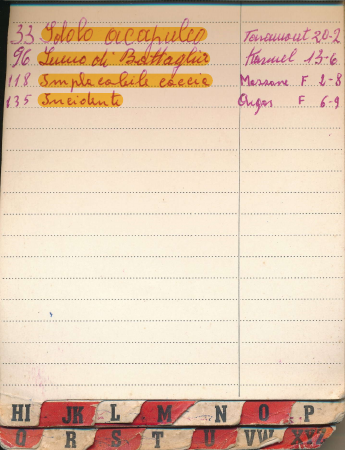 33 Idolo acapulco Paramout 20-2
96 Fumo di Battaglia Karmel 13-6
118 Implacabile caccia F 2-8
135 Incidente F 6-9
HI JK L M N O P
Q R S T U VW XYZ